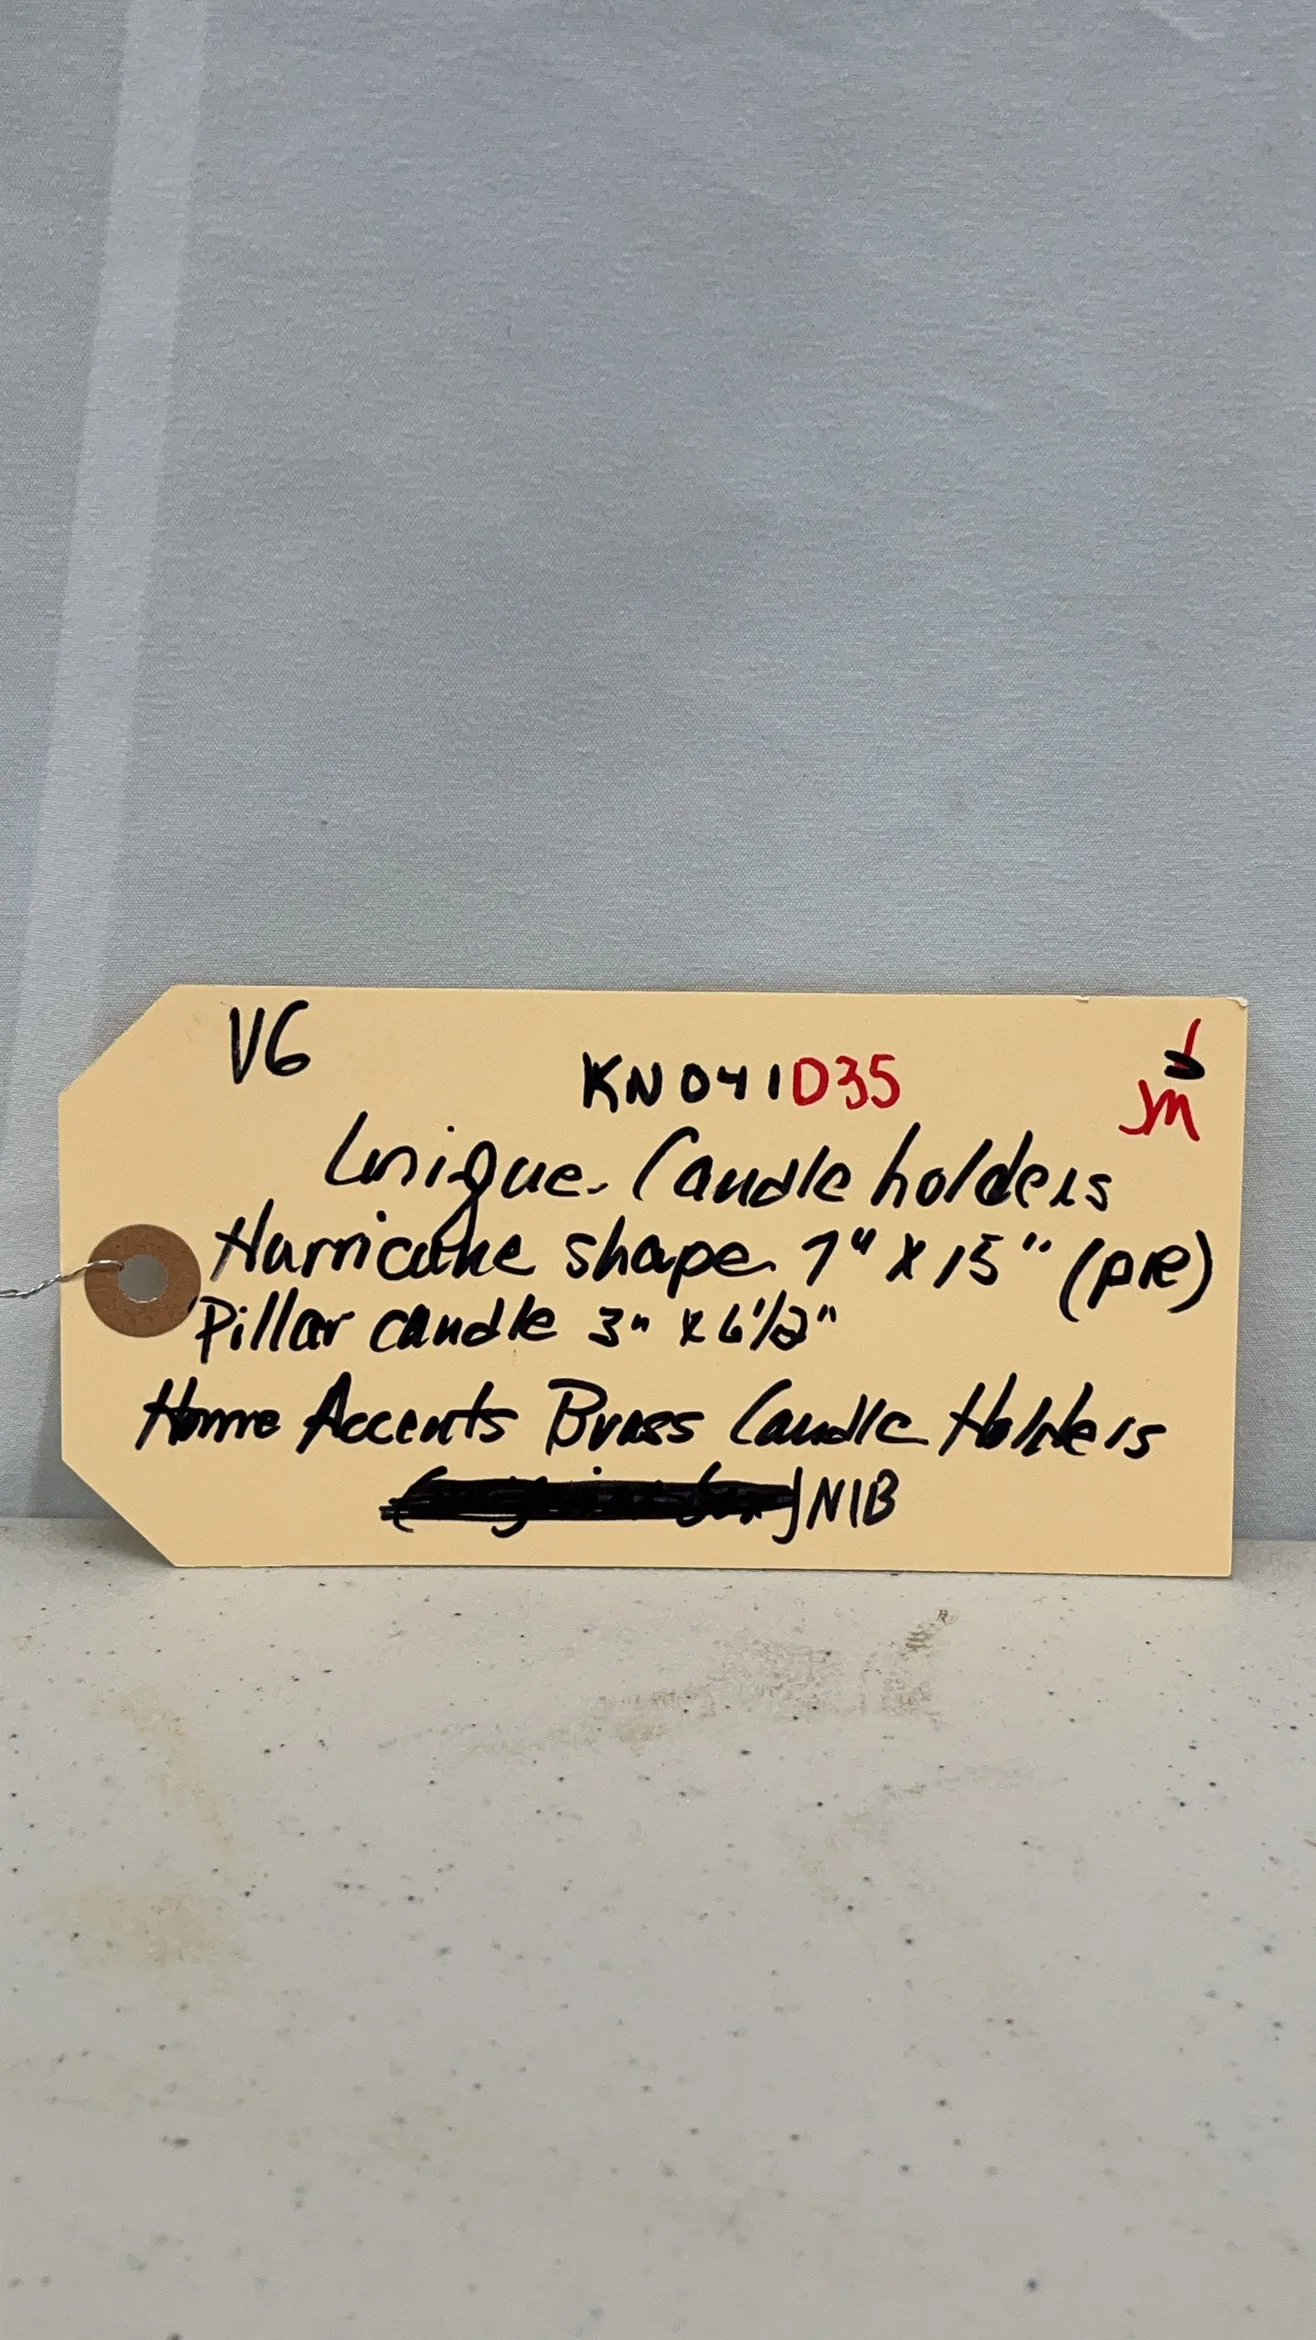 V6
KN041D35
JM
Unique Candle holders
Hurricane shape 7" X 15" (PR)
Pillar candle 3" x 6 1/2"
Home Accents Brass Candle Holders
NIB